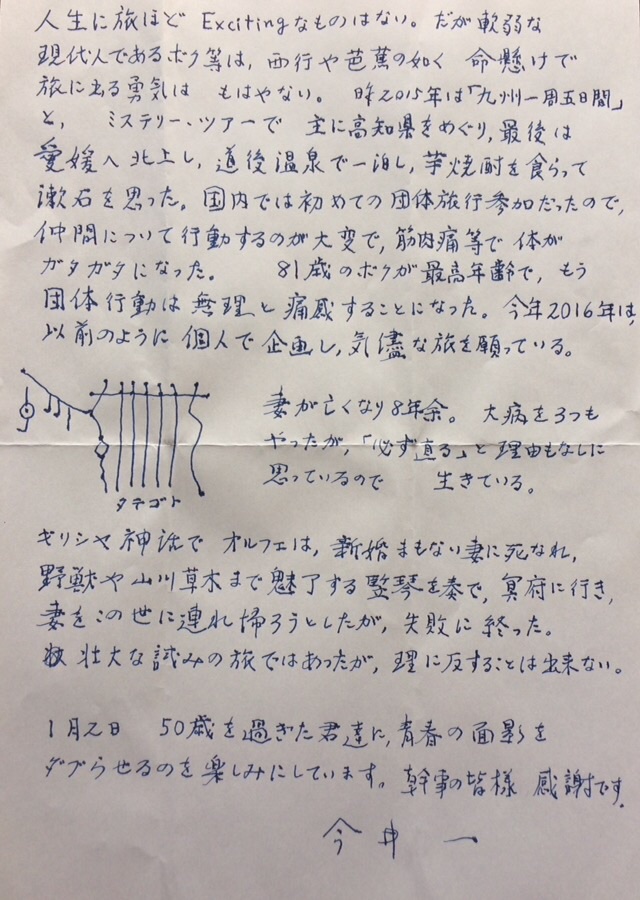 人生に旅ほど Excitingなものはない。だが軟弱な
現代人であるボク等は、西行や芭蕉の如く 命懸けで
旅に出る勇気は もはやない。 昨2015年は「九州一周五日間」
と、 ミステリー・ツアーで 主に高知県をめぐり、最後は
愛媛へ北上し、道後温泉で一泊し、芋焼酎を食らって
漱石を思った。国内では初めての団体旅行参加だったので、
仲間について行動するのが大変で、筋肉痛等で体が
ガタガタになった。 81歳のボクが最高年齢で、もう
団体行動は無理と痛感することになった。今年2016年は、
以前のように個人で企画し、気儘な旅を願っている。
妻が亡くなり8年余。 大病を3つも
やったが、「必ず直る」と理由もなしに
思っているので 生きている。
タテゴト
ギリシヤ神話で オルフェは、新婚まもない妻に死なれ、
野獣や山川草木まで魅了する竪琴を奏で、冥府に行き、
妻をこの世に連れ帰ろうとしたが、失敗に終った。
壮大な試みの旅ではあったが、理に反することは出来ない。
1月2日 50歳を過ぎた君達に、青春の面影を
ダブらせるのを楽しみにしています。幹事の皆様 感謝です。
今井 一